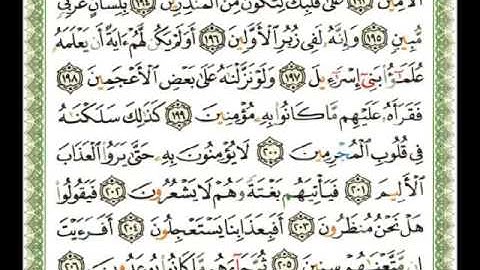 ٱلْأَمِينُ ١٩٣ عَلَىٰ قَلْبِكَ لِتَكُونَ مِنَ ٱلْمُنذِرِينَ ١٩٤ بِلِسَانٍ عَرَبِىٍّ
مُّبِينٍ ١٩٥ وَإِنَّهُۥ لَفِى زُبُرِ ٱلْأَوَّلِينَ ١٩٦ أَوَلَمْ يَكُن لَّهُمْ ءَايَةً أَن يَعْلَمَهُۥ
عُلَمَٰٓؤُا۟ بَنِىٓ إِسْرَٰٓءِيلَ ١٩٧ وَلَوْ نَزَّلْنَٰهُ عَلَىٰ بَعْضِ ٱلْأَعْجَمِينَ ١٩٨
فَقَرَأَهُۥ عَلَيْهِم مَّا كَانُوا۟ بِهِۦ مُؤْمِنِينَ ١٩٩ كَذَٰلِكَ سَلَكْنَٰهُ
فِى قُلُوبِ ٱلْمُجْرِمِينَ ٢٠٠ لَا يُؤْمِنُونَ بِهِۦ حَتَّىٰ يَرَوُا۟ ٱلْعَذَابَ
ٱلْأَلِيمَ ٢٠١ فَيَأْتِيَهُم بَغْتَةً وَهُمْ لَا يَشْعُرُونَ ٢٠٢ فَيَقُولُوا۟
هَلْ نَحْنُ مُنظَرُونَ ٢٠٣ أَفَبِعَذَابِنَا يَسْتَعْجِلُونَ ٢٠٤ أَفَرَءَيْتَ
إِن مَّتَّعْنَٰهُمْ سِنِينَ ٢٠٥ ثُمَّ جَآءَهُم مَّا كَانُوا۟ يُوعَدُونَ ٢٠٦